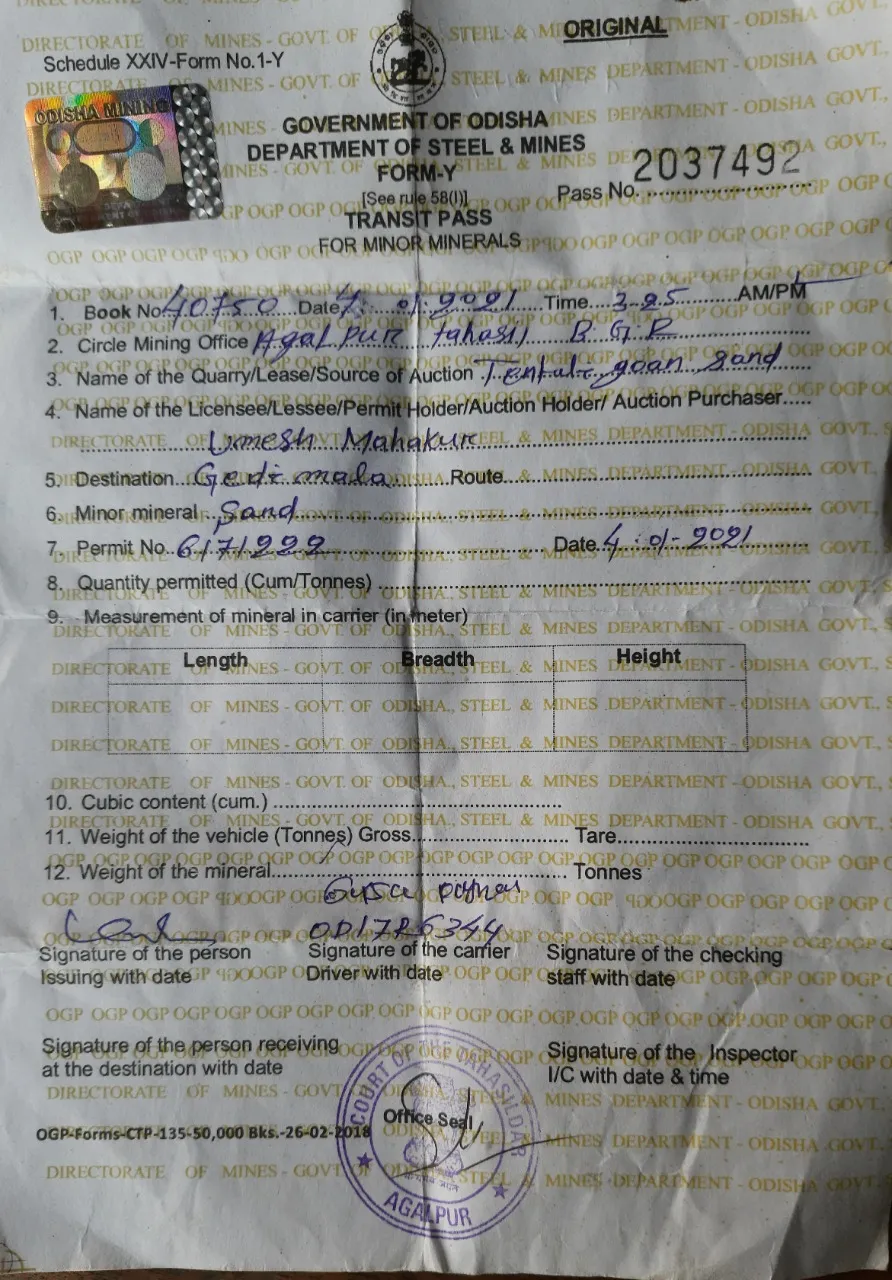 ORIGINAL
Schedule XXIV-Form No.1-Y
ODISHA MINING
GOVERNMENT OF ODISHA
DEPARTMENT OF STEEL & MINES
FORM-Y
[See rule 58(I)]
Pass No. 2037492
TRANSIT PASS
FOR MINOR MINERALS
1. Book No. 40750 Date 7-01-2021 Time 3-25 AM/PM
2. Circle Mining Office Agalpur tahasil B.G.R
3. Name of the Quarry/Lease/Source of Auction sand
4. Name of the Licensee/Lessee/Permit Holder/Auction Holder/ Auction Purchaser
Umesh Mahakur
5. Destination Gedimala Route
6. Minor mineral Sand
7. Permit No. 6171222 Date 4-01-2021
8. Quantity permitted (Cum/Tonnes)
9. Measurement of mineral in carrier (in meter)
Length Breadth Height
10. Cubic content (cum.)
11. Weight of the vehicle (Tonnes) Gross Tare
12. Weight of the mineral Tonnes
OD17R6344
Signature of the person Issuing with date
Signature of the carrier Driver with date
Signature of the checking staff with date
Signature of the person receiving at the destination with date
Signature of the Inspector I/C with date & time
Office Seal
COURT OF THE TAHASILDAR
AGALPUR
OGP-Forms-CTP-135-50,000 Bks.-26-02-2018
DIRECTORATE OF MINES - GOVT. OF ODISHA., STEEL & MINES DEPARTMENT - ODISHA GOVT.,
OGP OGP OGP OGP OGP OGP